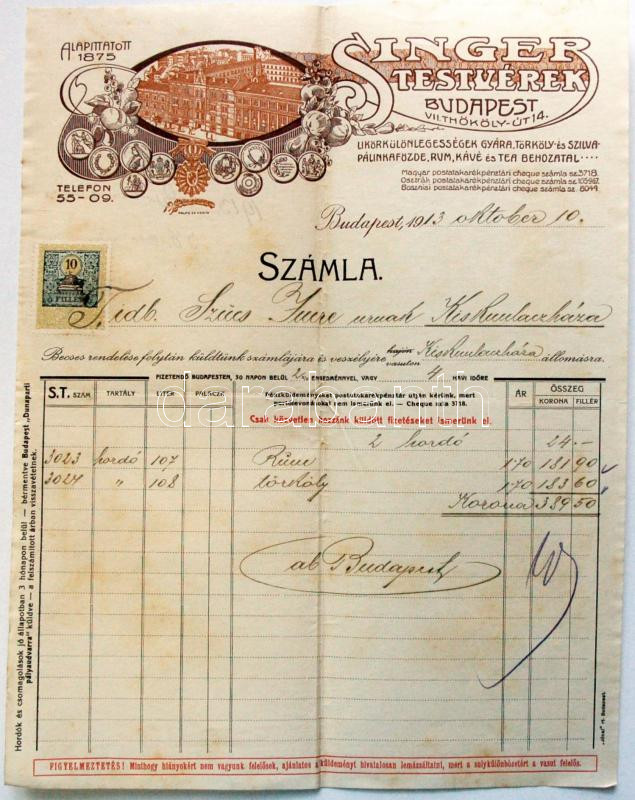 ALAPITTATOTT
1875
SINGER
TESTVÉREK
BUDAPEST
VII. THÖKÖLY-ÚT 14.
LIKÖRKÜLÖNLEGESSÉGEK GYÁRA, TÖRKÖLY- ÉS SZILVA-
PÁLINKAFŐZDE, RUM, KÁVÉ ÉS TEA BEHOZATAL ····
Magyar postatakarékpénztári cheque számla sz. 3718.
Osztrák postatakarékpénztári cheque számla sz. 105967.
Bosztniai postatakarékpénztári cheque számla sz. 8044.
TELEFON
55-09.
Budapest, 1913 október 10.
SZÁMLA.
10
FILLÉR
T. idb. Szücs Imre urnak Kiskunlaczháza
Becses rendelése folytán küldtünk számlájára és veszélyére hajón Kiskunlaczháza állomásra.
vasuton
FIZETENDŐ BUDAPESTEN, 30 NAPON BELÜL 2% ENGEDMÉNNYEL, VAGY 4 HAVI IDŐRE
S.T. SZÁM TARTÁLY LITER PALACZK ÁR ÖSSZEG
KORONA FILLÉR
Pénzküldeményeket postatakarékpénztár utján kérünk, mert
portólevonásokat nem ismerünk el. — Cheque szla 3718.
Csak közvetlen hozzánk küldött fizetéseket ismerünk el.
2 hordó 24.-
3023 hordó 107 Rum 170 181 90
3024 " 108 törköly 170 183 60
Korona 389 50
ab Budapest
Hordók és csomagolások jó állapotban 3 hónapon belül — bérmentve Budapest „Dunaparti
pályaudvarra" küldve — a felszámított árban visszavétetnek.
FIGYELMEZTETÉS! Minthogy hiányokért nem vagyunk felelősek, ajánlatos a küldeményt hivatalosan lemázsáltatni, mert a sulykülönbözetért a vasut felelős.
darabanth